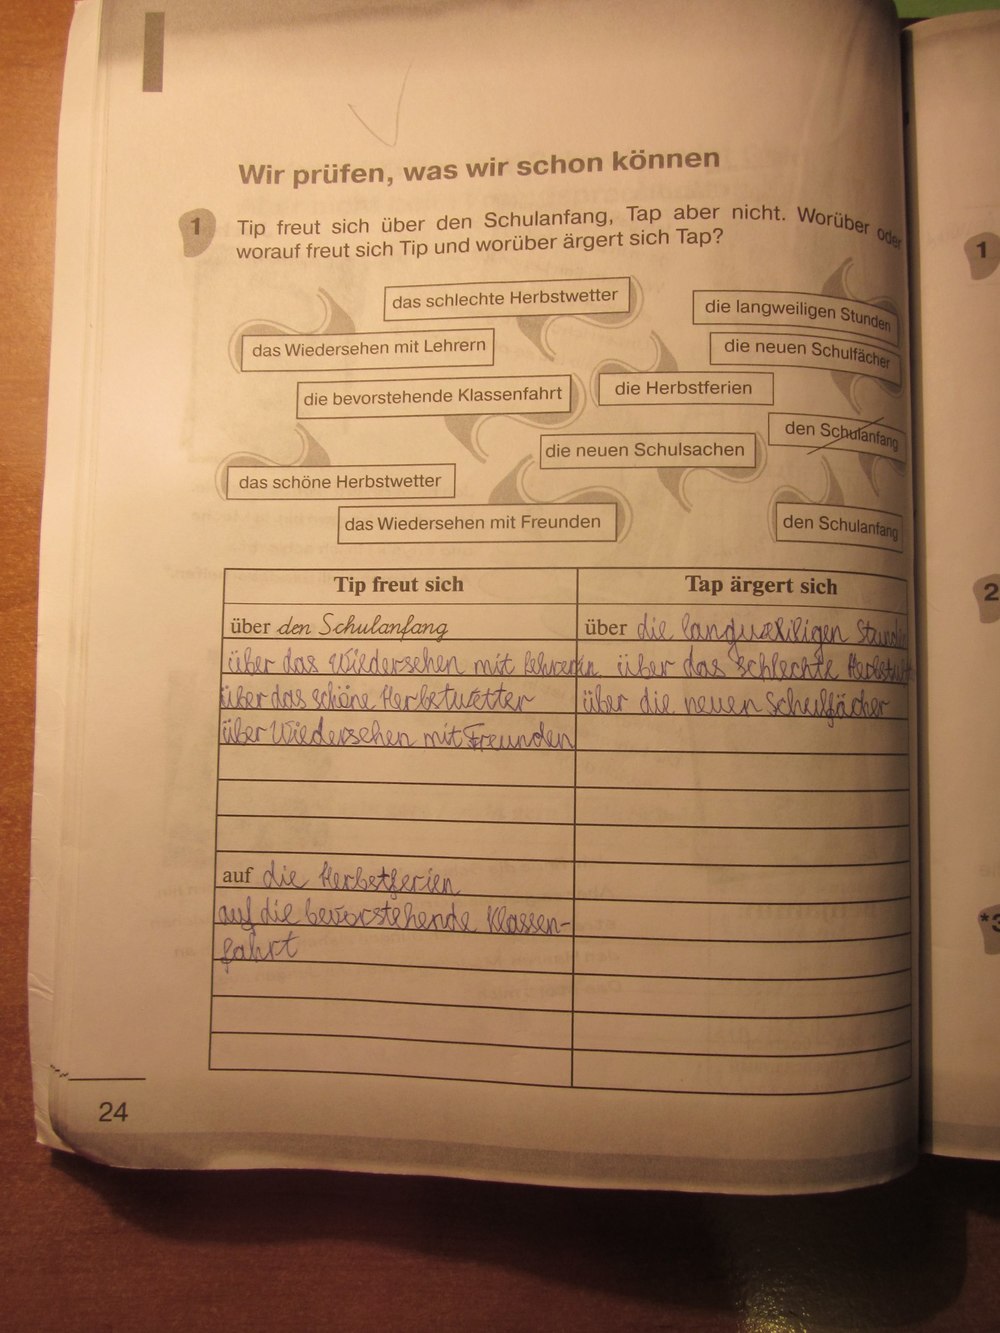 Wir prüfen, was wir schon können
1
Tip freut sich über den Schulanfang, Tap aber nicht. Worüber oder
worauf freut sich Tip und worüber ärgert sich Tap?
das schlechte Herbstwetter
die langweiligen Stunden
das Wiedersehen mit Lehrern
die neuen Schulfächer
die bevorstehende Klassenfahrt
die Herbstferien
den Schulanfang
die neuen Schulsachen
das schöne Herbstwetter
das Wiedersehen mit Freunden
den Schulanfang
Tip freut sich
Tap ärgert sich
über den Schulanfang
über die langweiligen Stunden
über das Wiedersehen mit Lehrern
über das schlechte
über das schöne Herbstwetter
über die neuen Schulfächer
über Wiedersehen mit Freunden
auf die Herbstferien
auf die bevorstehende Klassen-
fahrt
24
1
2
*3